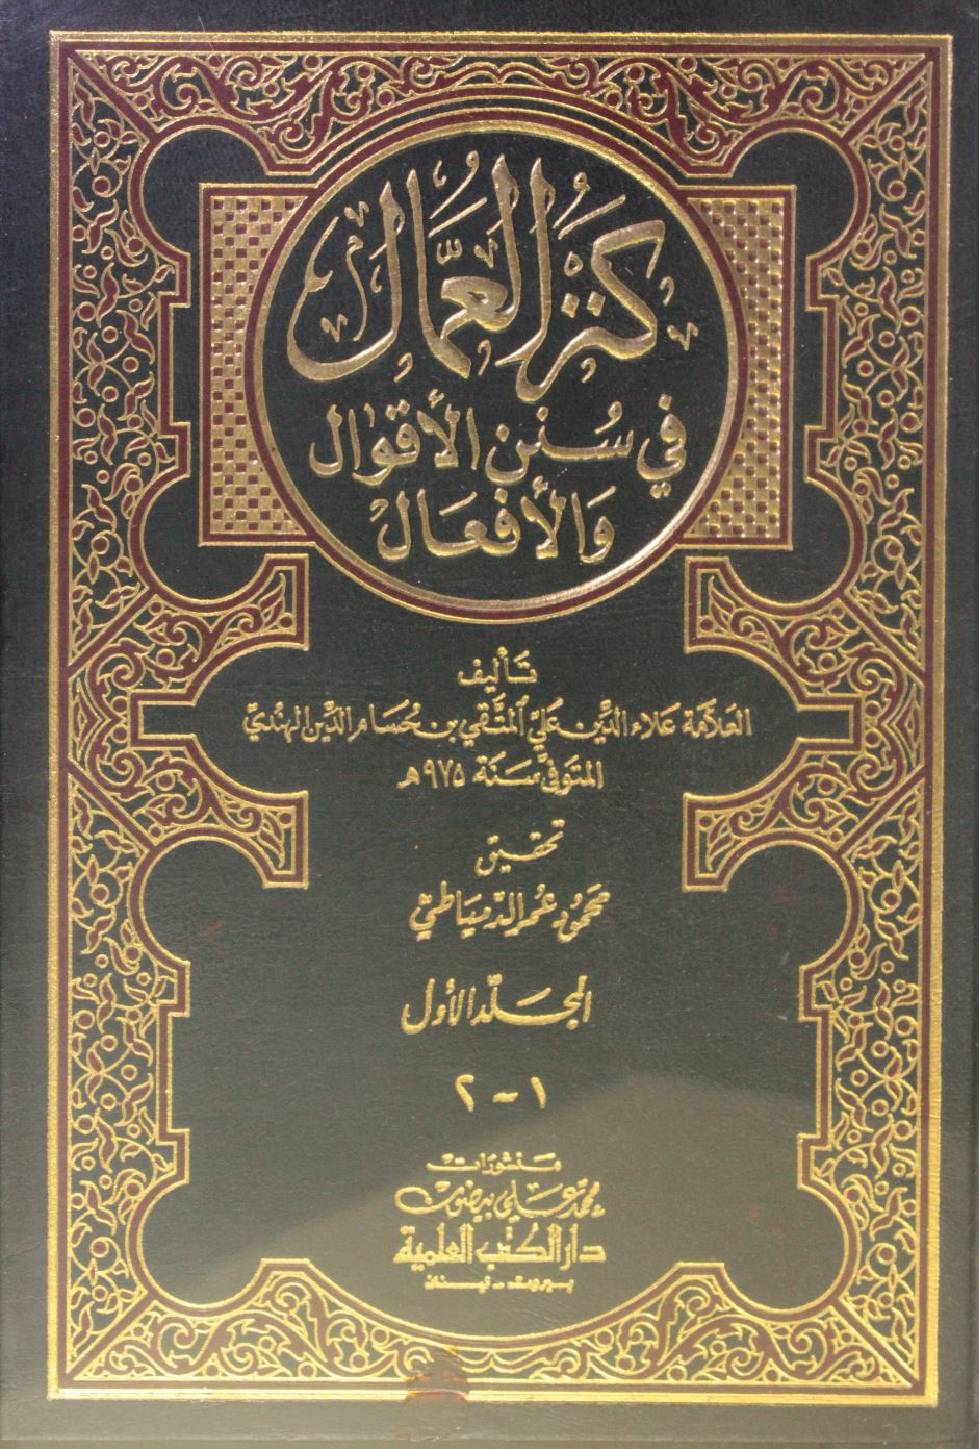 كنز العمال
في سنن الأقوال
والأفعال
تأليف
العلامة علاء الدين علي المتقي بن حسام الدين الهندي
المتوفى سنة ٩٧٥هـ
تحقيق
محمود عمر الدمياطي
المجلد الأول
١ - ٢
منشورات
محمد علي بيضون
دار الكتب العلمية
بيروت - لبنان